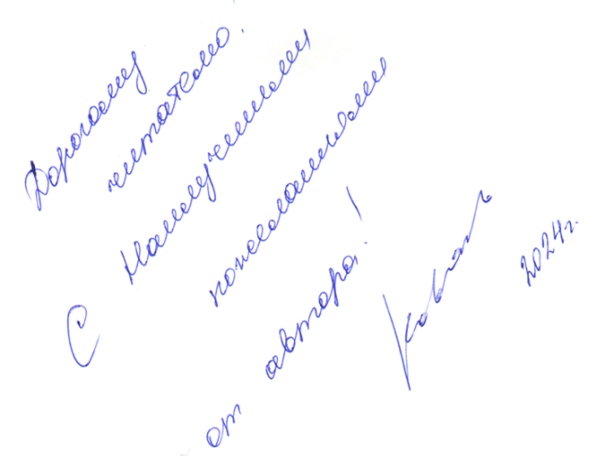 Дорогому
читателю.
С Наилучшими
пожеланиями
от автора!
2024г.